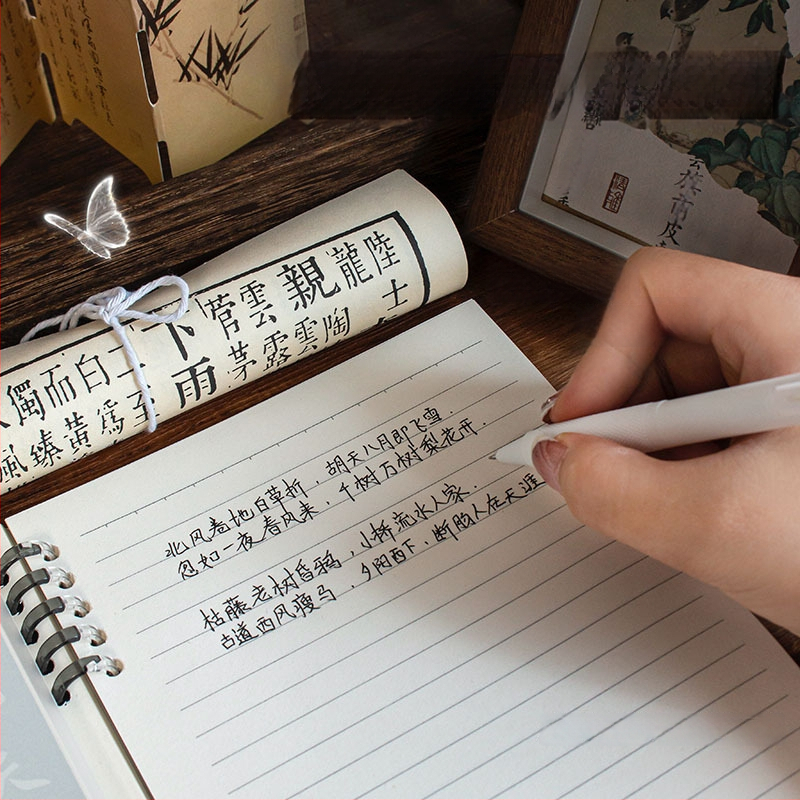 陸士
龍陶
親雲
雲露
菅茅
下雨
二至
白爲
而黄
獨臻
北风卷地白草折，胡天八月即飞雪．
忽如一夜春风来，千树万树梨花开．
枯藤老树昏鸦，小桥流水人家．
古道西风瘦马，夕阳西下、断肠人在天涯